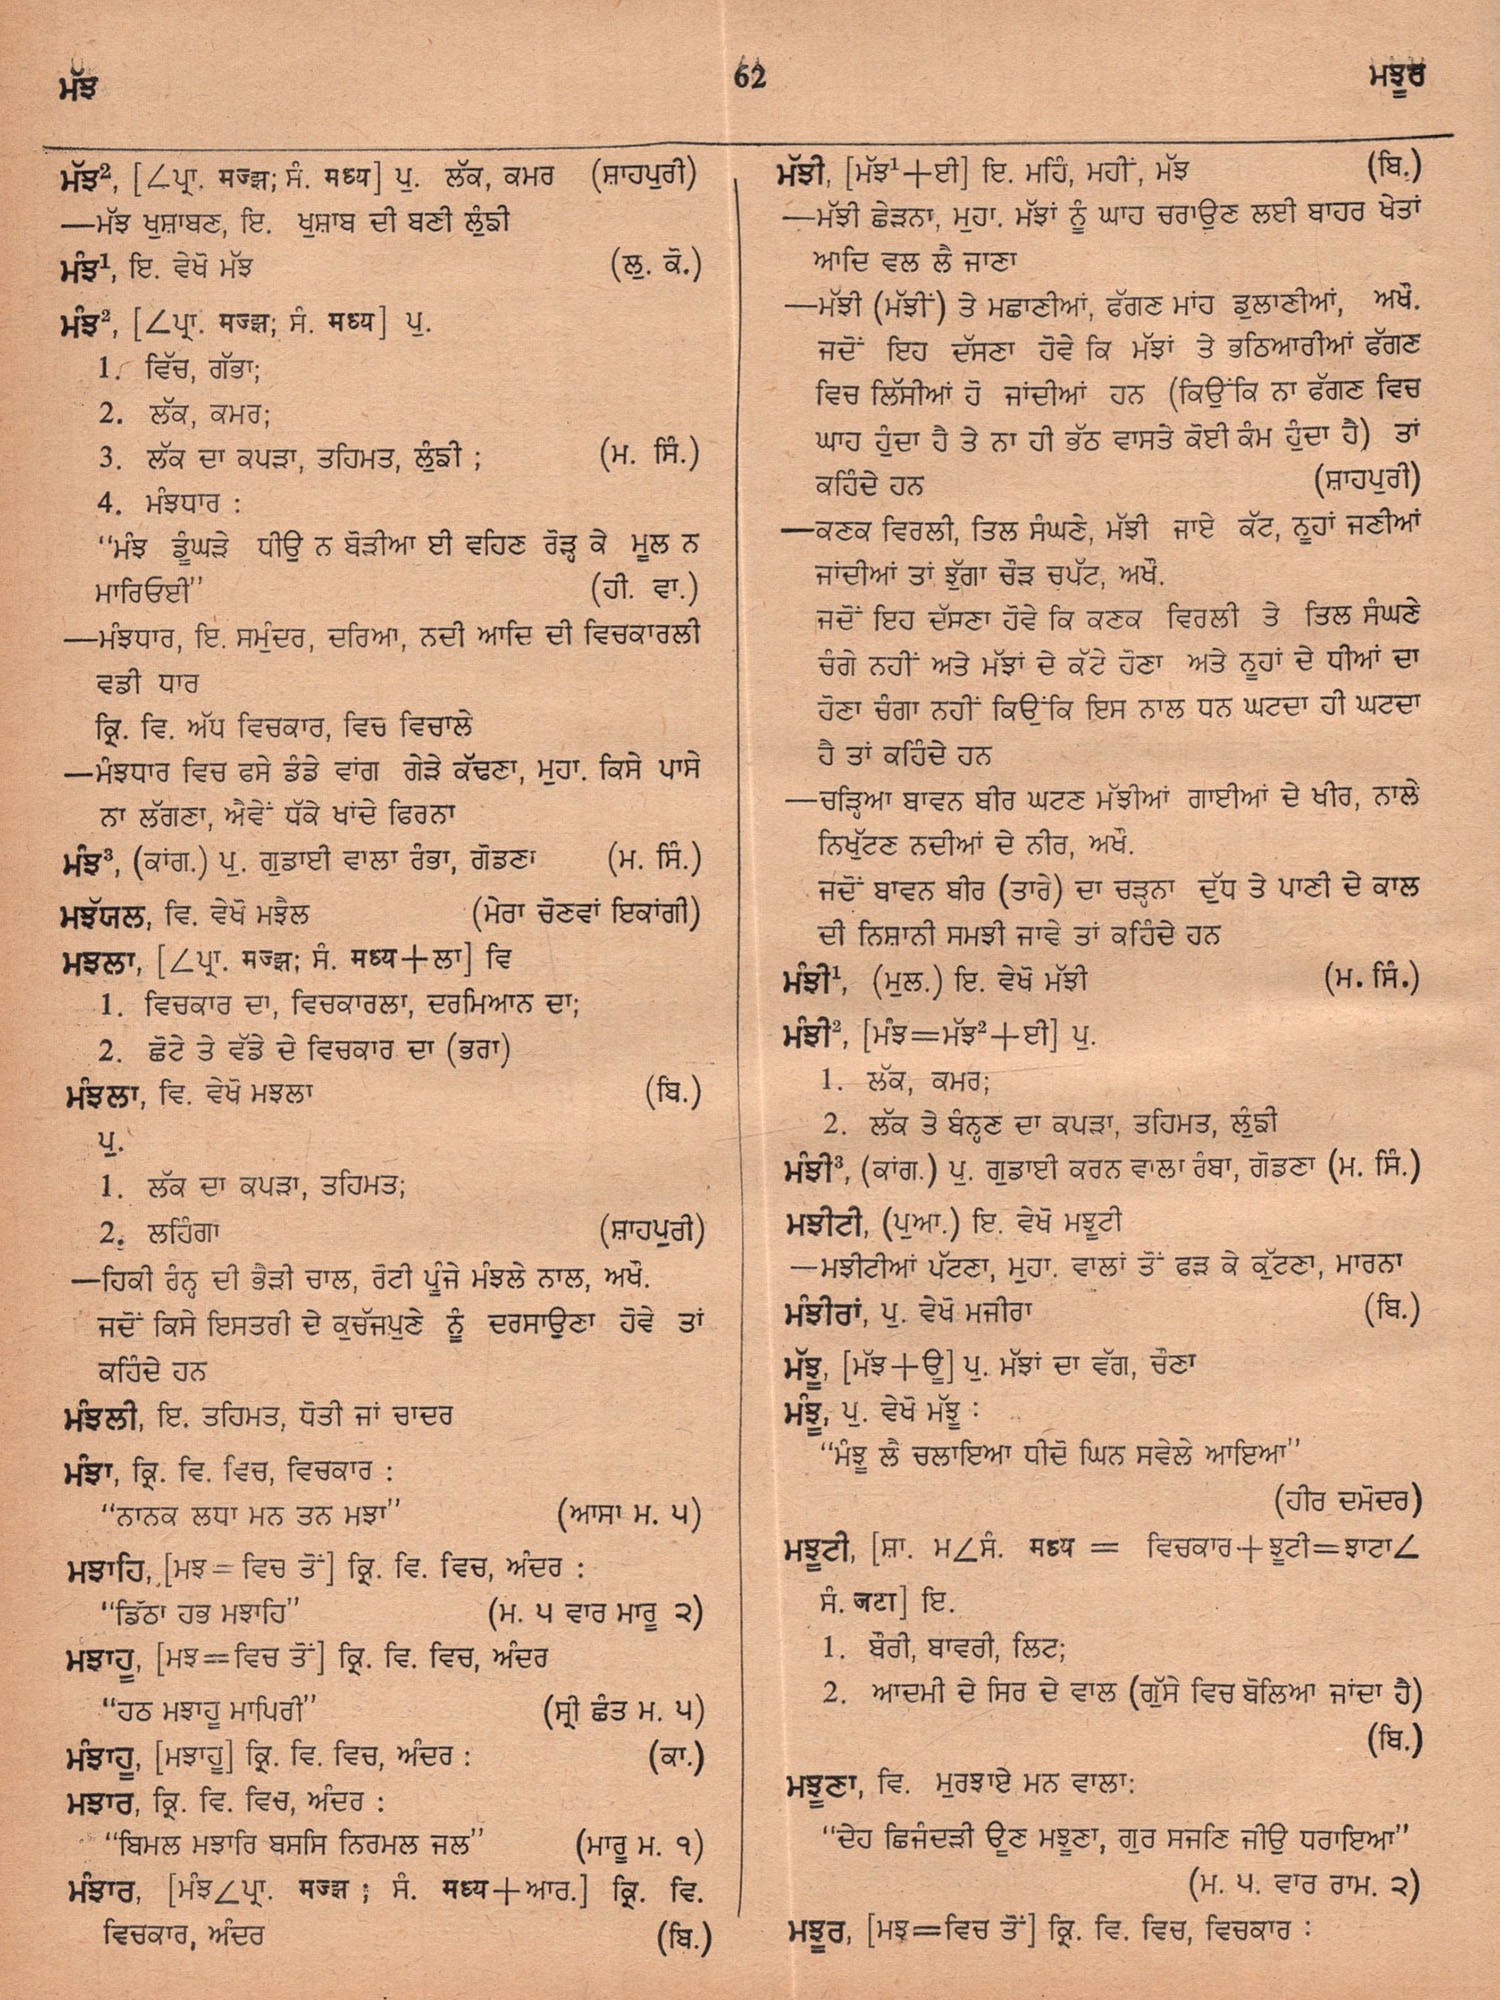 ਮੱਝ
62
ਮਝੂਰ
ਮੱਝ², [∠ਪ੍ਰਾ. मज्झ; ਸੰ. मध्य] ਪੁ. ਲੱਕ, ਕਮਰ (ਸ਼ਾਹਪੁਰੀ)
—ਮੱਝ ਖੁਸ਼ਾਬਣ, ਇ. ਖੁਸ਼ਾਬ ਦੀ ਬਣੀ ਲੁੰਙੀ
ਮੰਝ¹, ਇ. ਵੇਖੋ ਮੱਝ (ਲੁ. ਕੋ.)
ਮੰਝ², [∠ਪ੍ਰਾ. मज्झ; ਸੰ. मध्य] ਪੁ.
1. ਵਿੱਚ, ਗੱਭਾ;
2. ਲੱਕ, ਕਮਰ;
3. ਲੱਕ ਦਾ ਕਪੜਾ, ਤਹਿਮਤ, ਲੁੰਙੀ ; (ਮ. ਸਿੰ.)
4. ਮੰਝਧਾਰ :
“ਮੰਝ ਡੂੰਘੜੇ ਧੀਉ ਨ ਬੋੜੀਆ ਈ ਵਹਿਣ ਰੋੜ੍ਹ ਕੇ ਮੂਲ ਨ
ਮਾਰਿਓਈ” (ਹੀ. ਵਾ.)
—ਮੰਝਧਾਰ, ਇ. ਸਮੁੰਦਰ, ਦਰਿਆ, ਨਦੀ ਆਦਿ ਦੀ ਵਿਚਕਾਰਲੀ
ਵਡੀ ਧਾਰ
ਕ੍ਰਿ. ਵਿ. ਅੱਧ ਵਿਚਕਾਰ, ਵਿਚ ਵਿਚਾਲੇ
—ਮੰਝਧਾਰ ਵਿਚ ਫਸੇ ਡੰਡੇ ਵਾਂਗ ਗੇੜੇ ਕੱਢਣਾ, ਮੁਹਾ. ਕਿਸੇ ਪਾਸੇ
ਨਾ ਲੱਗਣਾ, ਐਵੇਂ ਧੱਕੇ ਖਾਂਦੇ ਫਿਰਨਾ
ਮੰਝ³, (ਕਾਂਗ.) ਪੁ. ਗੁਡਾਈ ਵਾਲਾ ਰੰਭਾ, ਗੋਡਣਾ (ਮ. ਸਿੰ.)
ਮਝੱਯਲ, ਵਿ. ਵੇਖੋ ਮਝੈਲ (ਮੇਰਾ ਚੋਣਵਾਂ ਇਕਾਂਗੀ)
ਮਝਲਾ, [∠ਪ੍ਰਾ. मज्झ; ਸੰ. मध्य+ਲਾ] ਵਿ
1. ਵਿਚਕਾਰ ਦਾ, ਵਿਚਕਾਰਲਾ, ਦਰਮਿਆਨ ਦਾ;
2. ਛੋਟੇ ਤੇ ਵੱਡੇ ਦੇ ਵਿਚਕਾਰ ਦਾ (ਭਰਾ)
ਮੰਝਲਾ, ਵਿ. ਵੇਖੋ ਮਝਲਾ (ਬਿ.)
ਪੁ.
1. ਲੱਕ ਦਾ ਕਪੜਾ, ਤਹਿਮਤ;
2. ਲਹਿੰਗਾ (ਸ਼ਾਹਪੁਰੀ)
—ਹਿਕੀ ਰੰਨ੍ਹ ਦੀ ਭੈੜੀ ਚਾਲ, ਰੋਟੀ ਪੂੰਜੇ ਮੰਝਲੇ ਨਾਲ, ਅਖੌ.
ਜਦੋਂ ਕਿਸੇ ਇਸਤਰੀ ਦੇ ਕੁਚੱਜਪੁਣੇ ਨੂੰ ਦਰਸਾਉਣਾ ਹੋਵੇ ਤਾਂ
ਕਹਿੰਦੇ ਹਨ
ਮੰਝਲੀ, ਇ. ਤਹਿਮਤ, ਧੋਤੀ ਜਾਂ ਚਾਦਰ
ਮੰਝਾ, ਕ੍ਰਿ. ਵਿ. ਵਿਚ, ਵਿਚਕਾਰ :
“ਨਾਨਕ ਲਧਾ ਮਨ ਤਨ ਮਝਾ” (ਆਸਾ ਮ. ੫)
ਮਝਾਹਿ, [ਮਝ=ਵਿਚ ਤੋਂ] ਕ੍ਰਿ. ਵਿ. ਵਿਚ, ਅੰਦਰ :
“ਡਿੱਠਾ ਹਭ ਮਝਾਹਿ” (ਮ. ੫ ਵਾਰ ਮਾਰੂ ੨)
ਮਝਾਹੂ, [ਮਝ=ਵਿਚ ਤੋਂ] ਕ੍ਰਿ. ਵਿ. ਵਿਚ, ਅੰਦਰ
“ਹਠ ਮਝਾਹੂ ਮਾਪਿਰੀ” (ਸ੍ਰੀ ਛੰਤ ਮ. ੫)
ਮੰਝਾਹੂ, [ਮਝਾਹੂ] ਕ੍ਰਿ. ਵਿ. ਵਿਚ, ਅੰਦਰ : (ਕਾ.)
ਮਝਾਰ, ਕ੍ਰਿ. ਵਿ. ਵਿਚ, ਅੰਦਰ :
“ਬਿਮਲ ਮਝਾਰਿ ਬਸਸਿ ਨਿਰਮਲ ਜਲ” (ਮਾਰੂ ਮ. ੧)
ਮੰਝਾਰ, [ਮੰਝ∠ਪ੍ਰਾ. मज्झ ; ਸੰ. मध्य+ਆਰ.] ਕ੍ਰਿ. ਵਿ.
ਵਿਚਕਾਰ, ਅੰਦਰ (ਬਿ.)
ਮੱਝੀ, [ਮੱਝ¹+ਈ] ਇ. ਮਹਿੰ, ਮਹੀਂ, ਮੱਝ (ਬਿ.)
—ਮੱਝੀ ਛੇੜਨਾ, ਮੁਹਾ. ਮੱਝਾਂ ਨੂੰ ਘਾਹ ਚਰਾਉਣ ਲਈ ਬਾਹਰ ਖੇਤਾਂ
ਆਦਿ ਵਲ ਲੈ ਜਾਣਾ
—ਮੱਝੀ (ਮੱਝੀਂ) ਤੇ ਮਛਾਣੀਆਂ, ਫੱਗਣ ਮਾਂਹ ਡੁਲਾਣੀਆਂ, ਅਖੌ.
ਜਦੋਂ ਇਹ ਦੱਸਣਾ ਹੋਵੇ ਕਿ ਮੱਝਾਂ ਤੇ ਭਠਿਆਰੀਆਂ ਫੱਗਣ
ਵਿਚ ਲਿੱਸੀਆਂ ਹੋ ਜਾਂਦੀਆਂ ਹਨ (ਕਿਉਂਕਿ ਨਾ ਫੱਗਣ ਵਿਚ
ਘਾਹ ਹੁੰਦਾ ਹੈ ਤੇ ਨਾ ਹੀ ਭੱਠ ਵਾਸਤੇ ਕੋਈ ਕੰਮ ਹੁੰਦਾ ਹੈ) ਤਾਂ
ਕਹਿੰਦੇ ਹਨ (ਸ਼ਾਹਪੁਰੀ)
—ਕਣਕ ਵਿਰਲੀ, ਤਿਲ ਸੰਘਣੇ, ਮੱਝੀ ਜਾਏ ਕੱਟ, ਨੂਹਾਂ ਜਣੀਆਂ
ਜਾਂਦੀਆਂ ਤਾਂ ਝੁੱਗਾ ਚੌੜ ਚਪੱਟ, ਅਖੌ.
ਜਦੋਂ ਇਹ ਦੱਸਣਾ ਹੋਵੇ ਕਿ ਕਣਕ ਵਿਰਲੀ ਤੇ ਤਿਲ ਸੰਘਣੇ
ਚੰਗੇ ਨਹੀਂ ਅਤੇ ਮੱਝਾਂ ਦੇ ਕੱਟੇ ਹੋਣਾ ਅਤੇ ਨੂਹਾਂ ਦੇ ਧੀਆਂ ਦਾ
ਹੋਣਾ ਚੰਗਾ ਨਹੀਂ ਕਿਉਂਕਿ ਇਸ ਨਾਲ ਧਨ ਘਟਦਾ ਹੀ ਘਟਦਾ
ਹੈ ਤਾਂ ਕਹਿੰਦੇ ਹਨ
—ਚੜ੍ਹਿਆ ਬਾਵਨ ਬੀਰ ਘਟਣ ਮੱਝੀਆਂ ਗਾਈਆਂ ਦੇ ਖੀਰ, ਨਾਲੇ
ਨਿਖੁੱਟਣ ਨਦੀਆਂ ਦੇ ਨੀਰ, ਅਖੌ.
ਜਦੋਂ ਬਾਵਨ ਬੀਰ (ਤਾਰੇ) ਦਾ ਚੜ੍ਹਨਾ ਦੁੱਧ ਤੇ ਪਾਣੀ ਦੇ ਕਾਲ
ਦੀ ਨਿਸ਼ਾਨੀ ਸਮਝੀ ਜਾਵੇ ਤਾਂ ਕਹਿੰਦੇ ਹਨ
ਮੰਝੀ¹, (ਮੁਲ.) ਇ. ਵੇਖੋ ਮੱਝੀ (ਮ. ਸਿੰ.)
ਮੰਝੀ², [ਮੰਝ=ਮੱਝ²+ਈ] ਪੁ.
1. ਲੱਕ, ਕਮਰ;
2. ਲੱਕ ਤੇ ਬੰਨ੍ਹਣ ਦਾ ਕਪੜਾ, ਤਹਿਮਤ, ਲੁੰਙੀ
ਮੰਝੀ³, (ਕਾਂਗ.) ਪੁ. ਗੁਡਾਈ ਕਰਨ ਵਾਲਾ ਰੰਬਾ, ਗੋਡਣਾ (ਮ. ਸਿੰ.)
ਮਝੀਟੀ, (ਪੁਆ.) ਇ. ਵੇਖੋ ਮਝੂਟੀ
—ਮਝੀਟੀਆਂ ਪੱਟਣਾ, ਮੁਹਾ. ਵਾਲਾਂ ਤੋਂ ਫੜ ਕੇ ਕੁੱਟਣਾ, ਮਾਰਨਾ
ਮੰਝੀਰਾਂ, ਪੁ. ਵੇਖੋ ਮਜੀਰਾ (ਬਿ.)
ਮੱਝੂ, [ਮੱਝ+ਊ] ਪੁ. ਮੱਝਾਂ ਦਾ ਵੱਗ, ਚੌਣਾ
ਮੰਝੂ, ਪੁ. ਵੇਖੋ ਮੱਝੂ :
“ਮੰਝੂ ਲੈ ਚਲਾਇਆ ਧੀਦੋ ਘਿਨ ਸਵੇਲੇ ਆਇਆ”
(ਹੀਰ ਦਮੋਦਰ)
ਮਝੂਟੀ, [ਸ਼ਾ. ਮ∠ਸੰ. मध्य = ਵਿਚਕਾਰ+ਝੂਟੀ=ਝਾਟਾ∠
ਸੰ. जटा] ਇ.
1. ਬੌਰੀ, ਬਾਵਰੀ, ਲਿਟ;
2. ਆਦਮੀ ਦੇ ਸਿਰ ਦੇ ਵਾਲ (ਗੁੱਸੇ ਵਿਚ ਬੋਲਿਆ ਜਾਂਦਾ ਹੈ)
(ਬਿ.)
ਮਝੂਣਾ, ਵਿ. ਮੁਰਝਾਏ ਮਨ ਵਾਲਾ:
“ਦੇਹ ਛਿਜੰਦੜੀ ਊਣ ਮਝੂਣਾ, ਗੁਰ ਸਜਣਿ ਜੀਉ ਧਰਾਇਆ”
(ਮ. ੫. ਵਾਰ ਰਾਮ. ੨)
ਮਝੂਰ, [ਮਝ=ਵਿਚ ਤੋਂ] ਕ੍ਰਿ. ਵਿ. ਵਿਚ, ਵਿਚਕਾਰ :